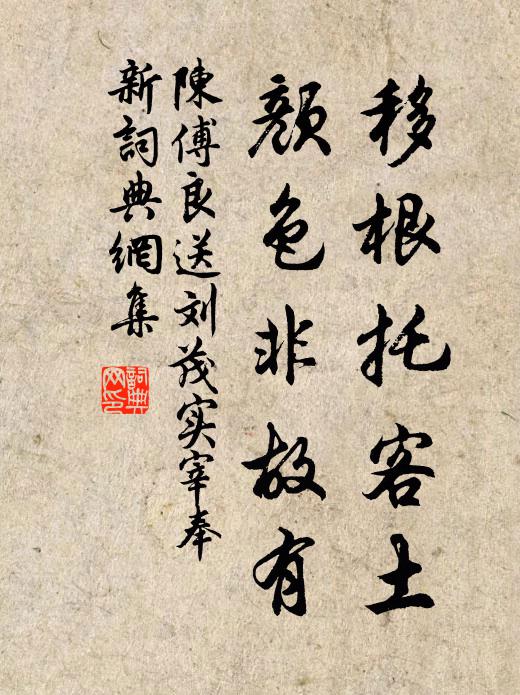 移根托客土
颜色非故有
陳傅良送刘茂实宰奉
新詞典網集
詞典网印